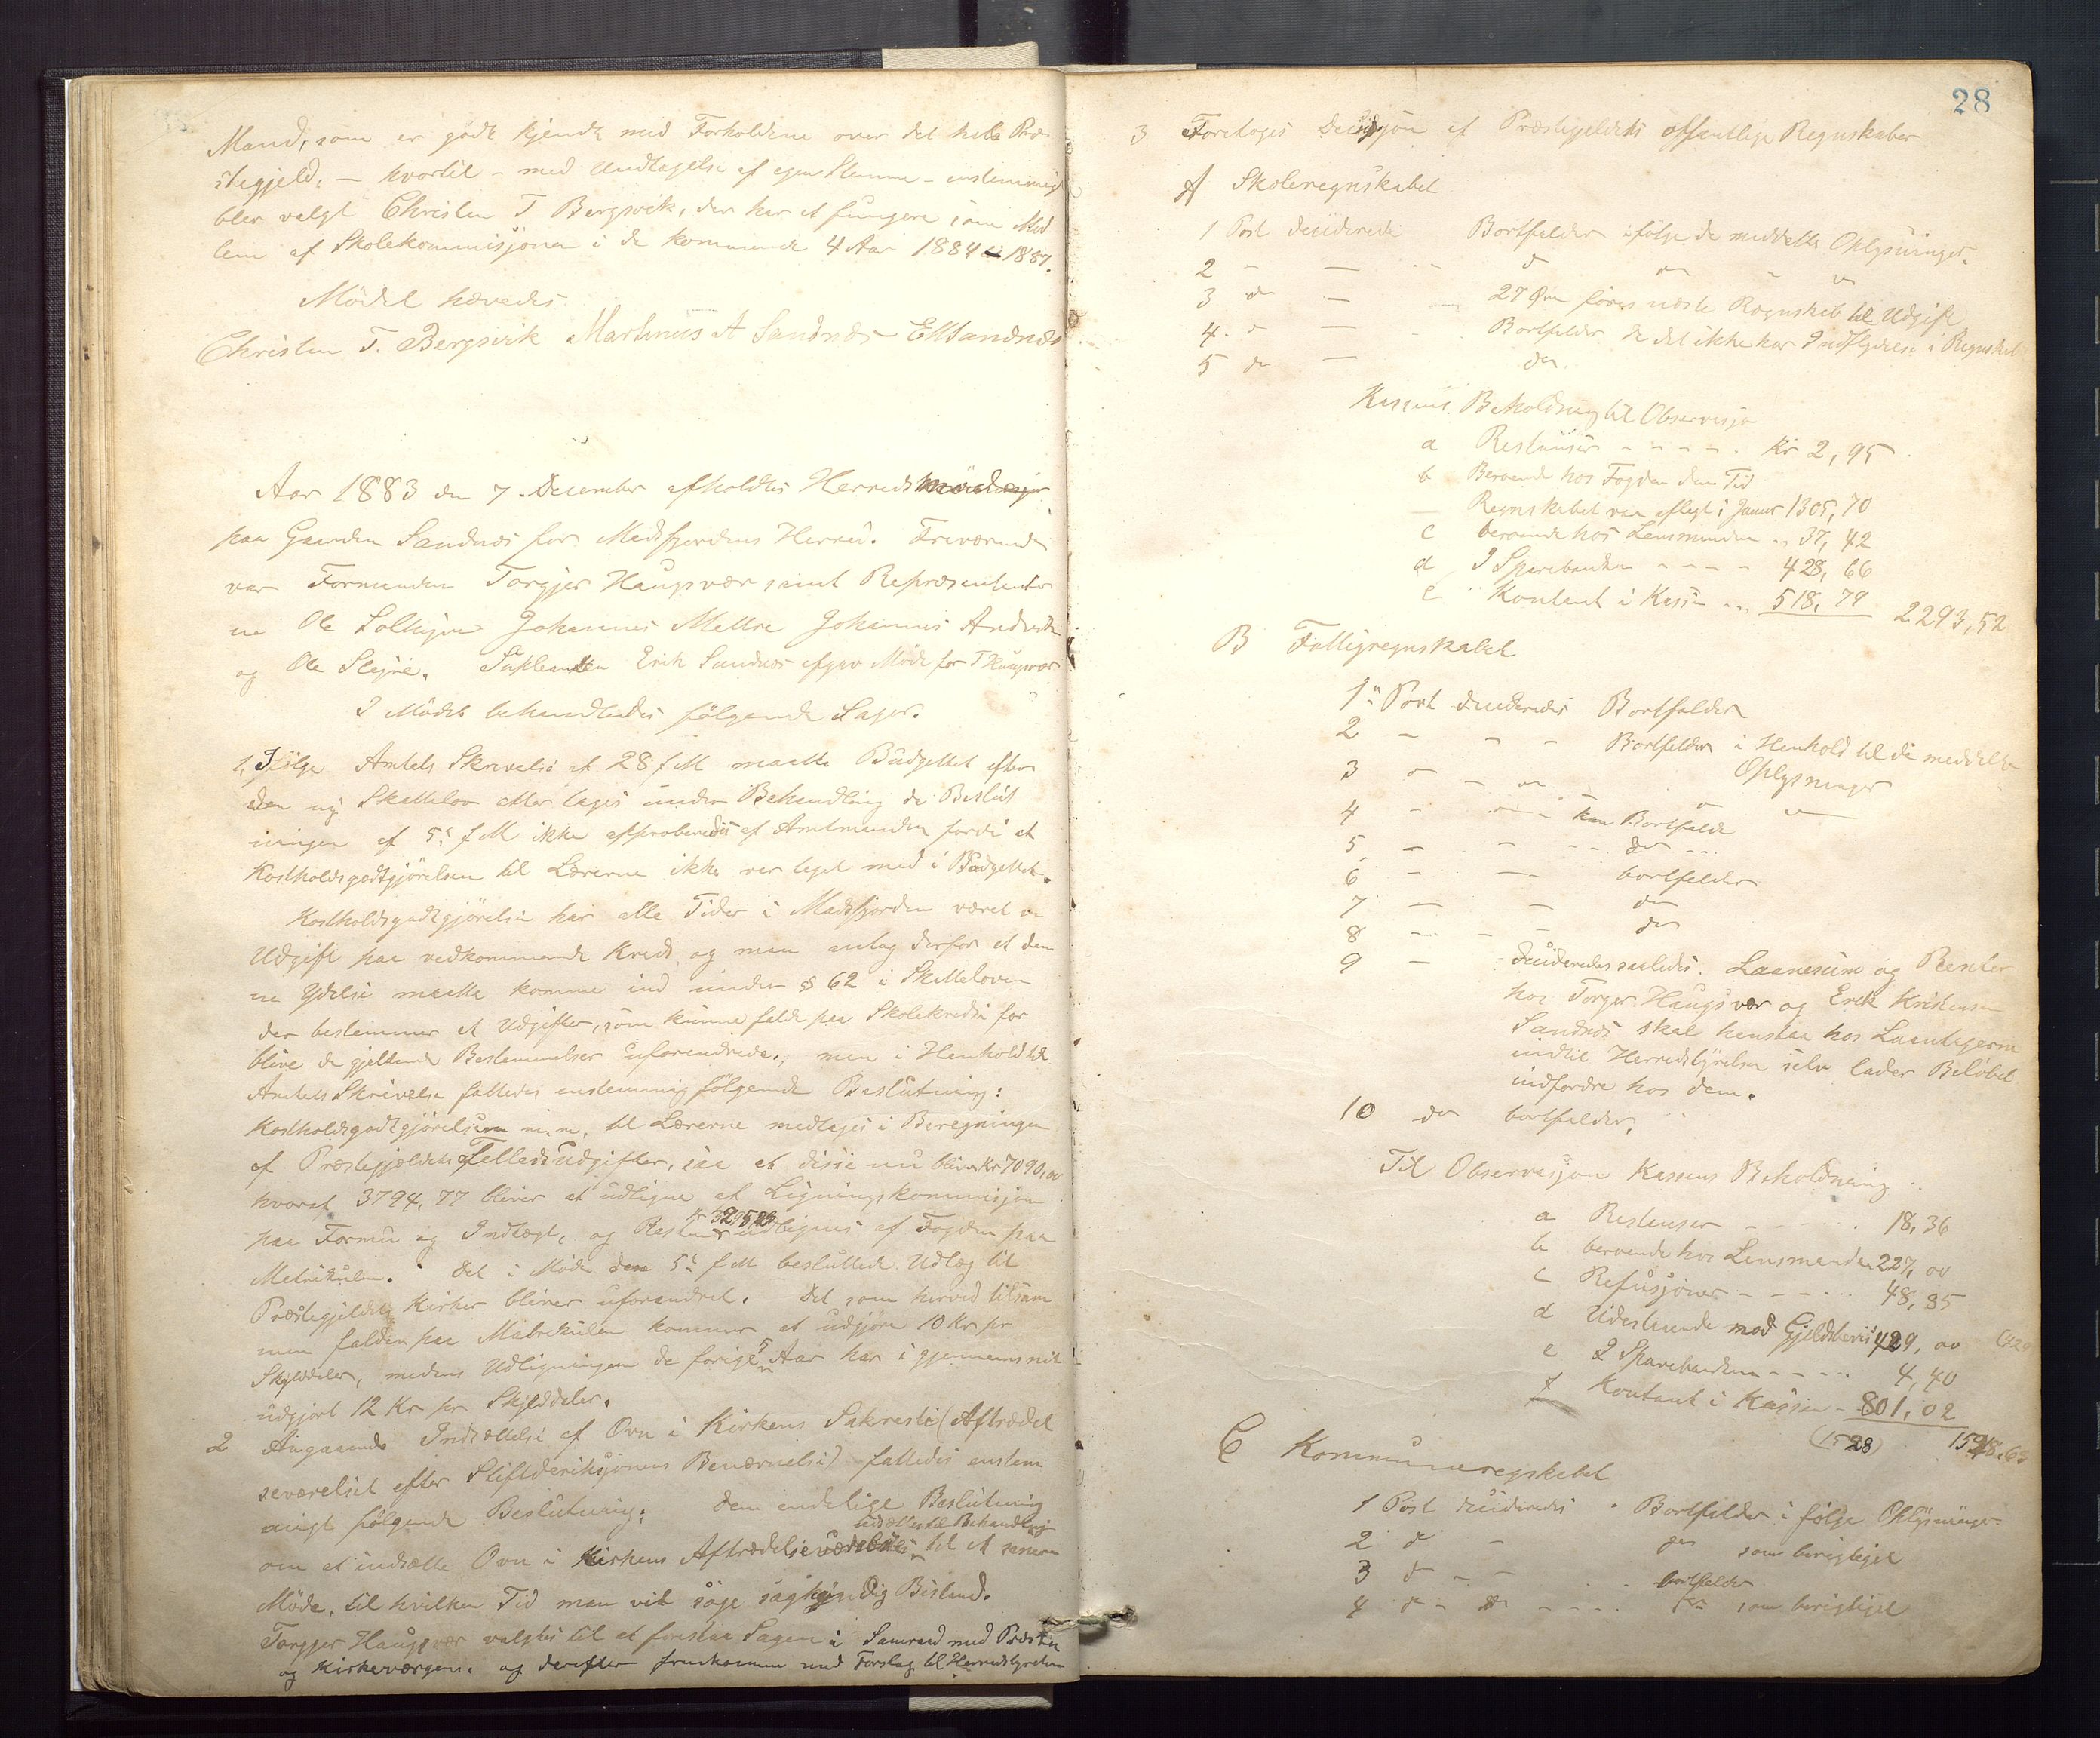 Mand, som er godt kjendt med Forholdene over det hele Præ-
stegjeld, — hvortil – med Undtagelse af egen Stemme – enstemmigt
blev valgt Christen T Bergsvik, der har at fungere som Med
lem af Skolekommisjonen i de kommende 4 Aar 1884 – 1887.
Mödet hævedes
Christen T. Bergsvik Martinus A Sandnæs E Sandnæs
Aar 1883 den 7. December afholdtes Herreds
paa Gaarden Sandnæs for Masfjordens Herred. Freværende
var Formanden Torgjer Haugsvær samt Repræsentanter
ne Ole Solheim Johannes Mattre Johannes Andvik
og Ole Steine. Suplanten Erik Sandnæs afgav Möde for T Haugsvær
I Mödet behandledes følgende Sager.
1, Ifölge Amtets Skrivelse af 28 f M maatte Budgettet efter
den ny Skattelov atter tages under Behandling da Beslut
ningen af 5te f M ikke approberedes af Amtmanden fordi at
Kostholdsgodtgjörelsen til Lærerne ikke var taget med i Budgettet.
Kostholdsgodtgjörelse har alle Tider i Masfjorden været en
Udgift paa vedkommende Kreds, og man antog derfor at den
ne Ydelse maatte komme ind under § 62 i Skatteloven
der bestemmer at Udgifter, som kunne falde paa Skolekredse for
blive de gjeldende Bestemmelser uforandrede., men i Henhold til
Amtets Skrivelse fattedes enstemmig følgende Beslutning:
Kostholdsgodtgjörelsen m.m. til Lærerne medtages i Beregningen
af Præstegjeldets Fellesudgifter, saa at disse nu bliver Kr 7090,00
hvoraf 3794,77 bliver at udligne af Ligningskommisjon
paa Formue og Indtægt, og Resten Kr 3295,23 udlignes af Fogden paa
Matrikulen. Det i Möde den 5te f M besluttede Udlæg til
Præstegjeldets Kirker bliver uforandret. Det som herved tilsam
men falder paa Matrikulen kommer at udgjöre 10 Kr pr
Skylddaler, medens Udligningen de forige 5 Aar har i gjennemsnit
udgjort 12 Kr pr Skylddaler.
2 Angaaende Indsættelse af Ovn i Kirkens Sakresti (Aftrædel
seværelset efter Stiftderiksjonens Benævnelse) fattedes enstem
migt følgende Beslutning: Den endelige Beslutning
om at indsætte Ovn i Kirkens Aftrædelseværelse udsættes til Behandling til et senere
Möde, til hvilken Tid man vil söge sagkyndig Bistand.
Torgjer Haugsvær valgtes til at forestaa Sagen i Samraad med Præsten
og Kirkeværgen. og derefter fremkomme med Forslag til Herredstyrelsen
28
3 Foretoges Desisjon af Præstegjeldets offentlige Regnskaber
A Skoleregnskabet
1 Post desiderede Bortfalder ifølge de meddelte Oplysninger.
2 – — do do – do
3 do — 27 Öre föres næste Regnskab til Udgift
4. do — Bortfalder da det ikke har Indflydelse i Regnskabet
5 do — do
Kassens Beholdning til Observasjon
a Restanser - - - - Kr 2,95
b Beroende hos Fogden den Tid
— Regnskabet var aflagt i Januar 1305,70
c beroende hos Lensmanden .. 37,42
d I Sparebanken - - - - 428,66
e Kontant i Kassen ... 518,79 2293,52
B Fattigregnskabet
1te Post desideredes Bortfalder
2 – – – Bortfalder i Henhold til de meddelte
Oplysninger
3 do – do – do do
4 – do – kan Bortfalde
5. – – – do
6 – — bortfalder
7 — – do
8 — – – do
9 – desideredes saaledes. Laanesum og Renter
hos Torger Haugsvær og Erik Kristensen
Sandnæs skal henstaa hos Laantagerne
indtil Herredstyrelsen selv lader Beløbet
indfordre hos dem.
10 do bortfalder.
Til Observasjon Kassens Beholdning
a Restanser - - - - - 18,36
b beroende hos Lensmanden 227,00
c Refusjoner - - - - - 48,85
d Udestaaende mod Gjeldsbevis 429,00 (429
e I Sparebanken - - - - 4,40
f Kontant i Kassen - 801,02
(1528) 1528,63
C Kommuneregskabet
1 Post desideredes Bortfalder i følge Oplysninger
2 do – do som berigtiget
3 do – – bortfalder
4 do – do – – do som berigtiget